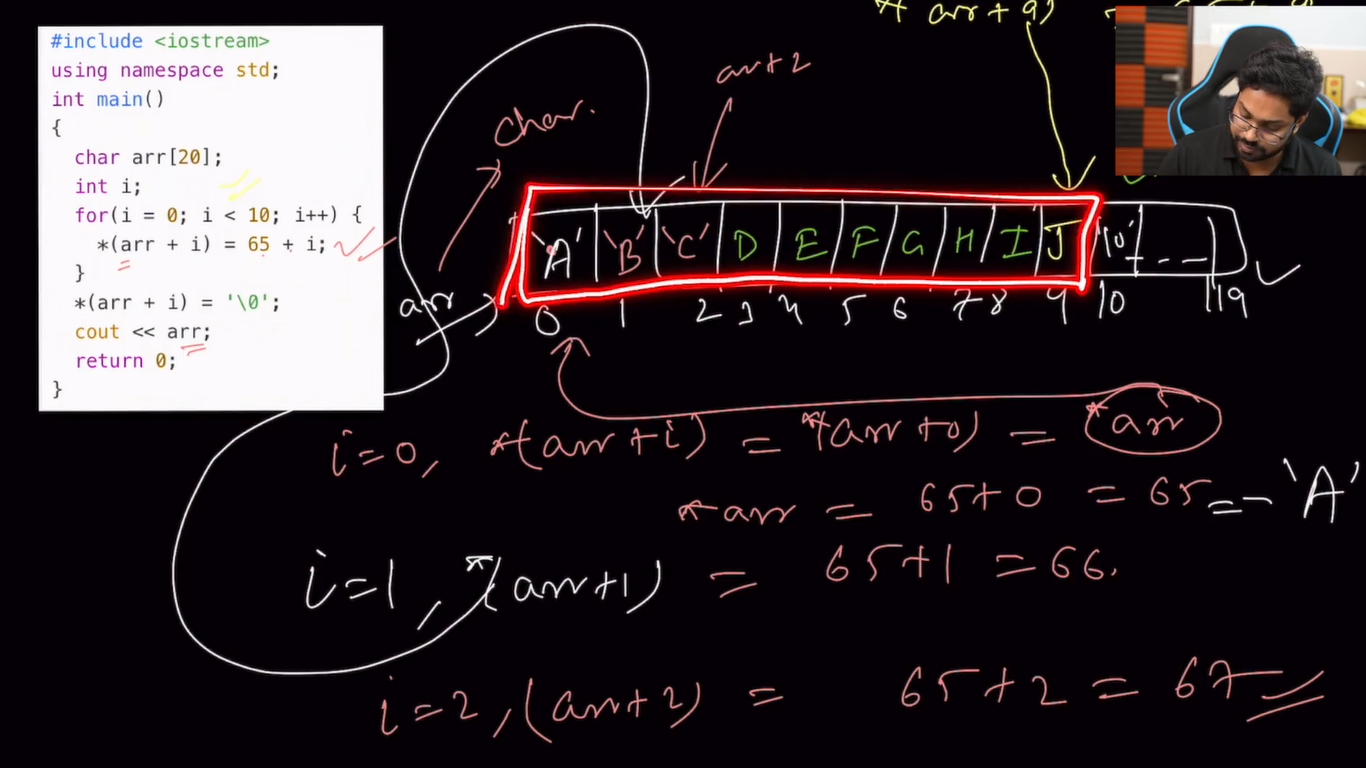 #include <iostream>
using namespace std;
int main()
{
char arr[20];
int i;
for(i = 0; i < 10; i++) {
*(arr + i) = 65 + i;
}
*(arr + i) = '\0';
cout << arr;
return 0;
}
* arr + 9)
arr+2
char.
arr
'A' 'B' 'C' D E F G H I J '\0' - -
0 1 2 3 4 5 6 7 8 9 10 19
i=0, *(arr + i) = *(arr + 0) = *arr
*arr = 65+0 = 65 == 'A'
i=1, *(arr+1) = 65+1 = 66.
i=2, (arr+2) = 65+2 = 67